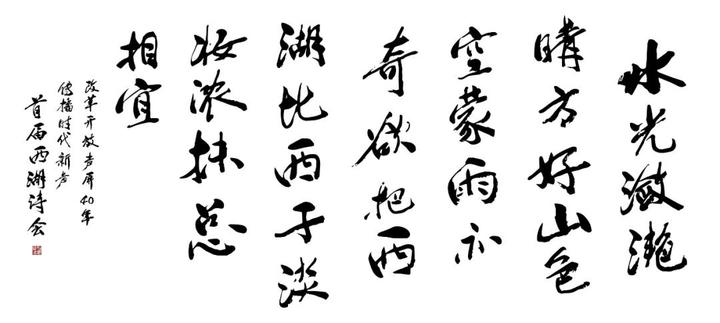 水光潋滟
晴方好山色
空蒙雨亦
奇欲把西
湖比西子淡
妆浓抹总
相宜
改革开放声屏40年
传播时代新声
首届西湖诗会